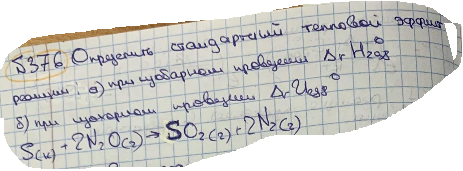 5376 Определить стандартный тепловой эффект
реакции: а) при изобарном проведении ΔrH298°
б) при изохорном проведении ΔrU298°
S(к) + 2N2O(г) → SO2(г) + 2N2(г)